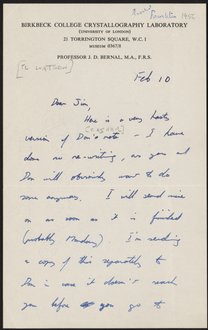 BIRKBECK COLLEGE CRYSTALLOGRAPHY LABORATORY
(UNIVERSITY OF LONDON)
21 TORRINGTON SQUARE, W.C. 1
MUSEUM 0367/8
PROFESSOR J. D. BERNAL, M.A., F.R.S.
[TO WATSON]
Feb 10
Dear Jim,
Here is a very hasty
(CASPAR)
version of Don's note - I have
done no re-writing, as you and
Don will obviously want to do
some anyways. I will send mine
on as soon as it is finished
(probably Monday). I'm sending
a copy of this separately to
Don in case it doesn't reach
you before you go to